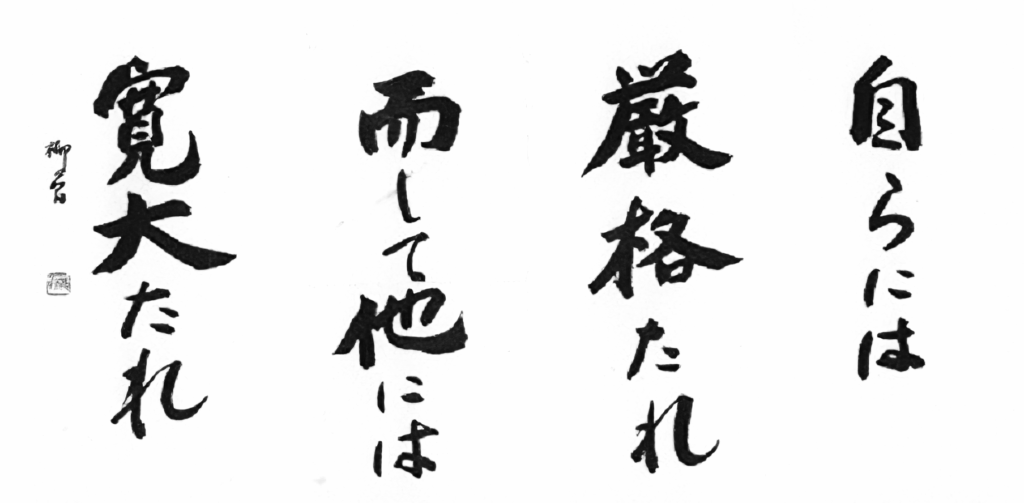 自らには
厳格たれ
而して他には
寛大たれ